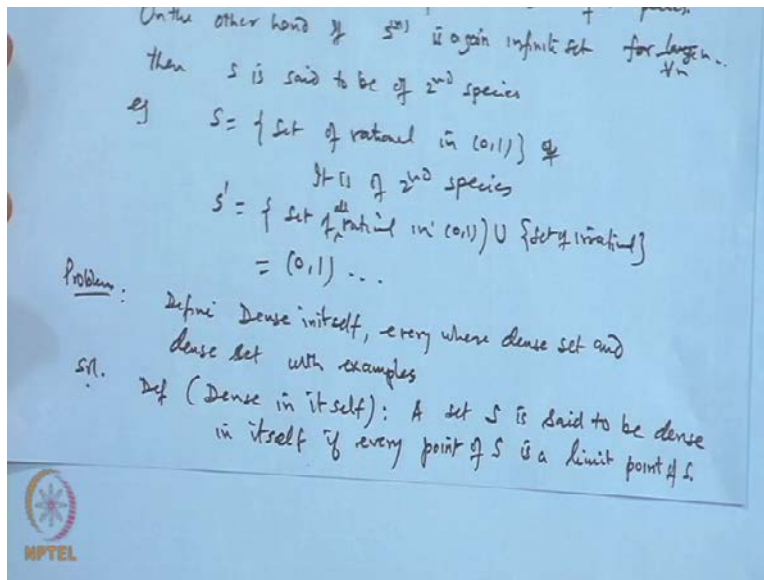 On the other hand if S^(n) is again infinite set for large n..
∀n
then S is said to be of 2nd species
eg S = { set of rational in (0,1) }
It is of 2nd species
S' = { set of all rational in (0,1) } ∪ { set of irrational }
= (0,1) ...
Problem: Define Dense initself, every where dense set and
dense set with examples
Sol. Def (Dense in itself): A set S is said to be dense
in itself if every point of S is a limit point of S.
NPTEL